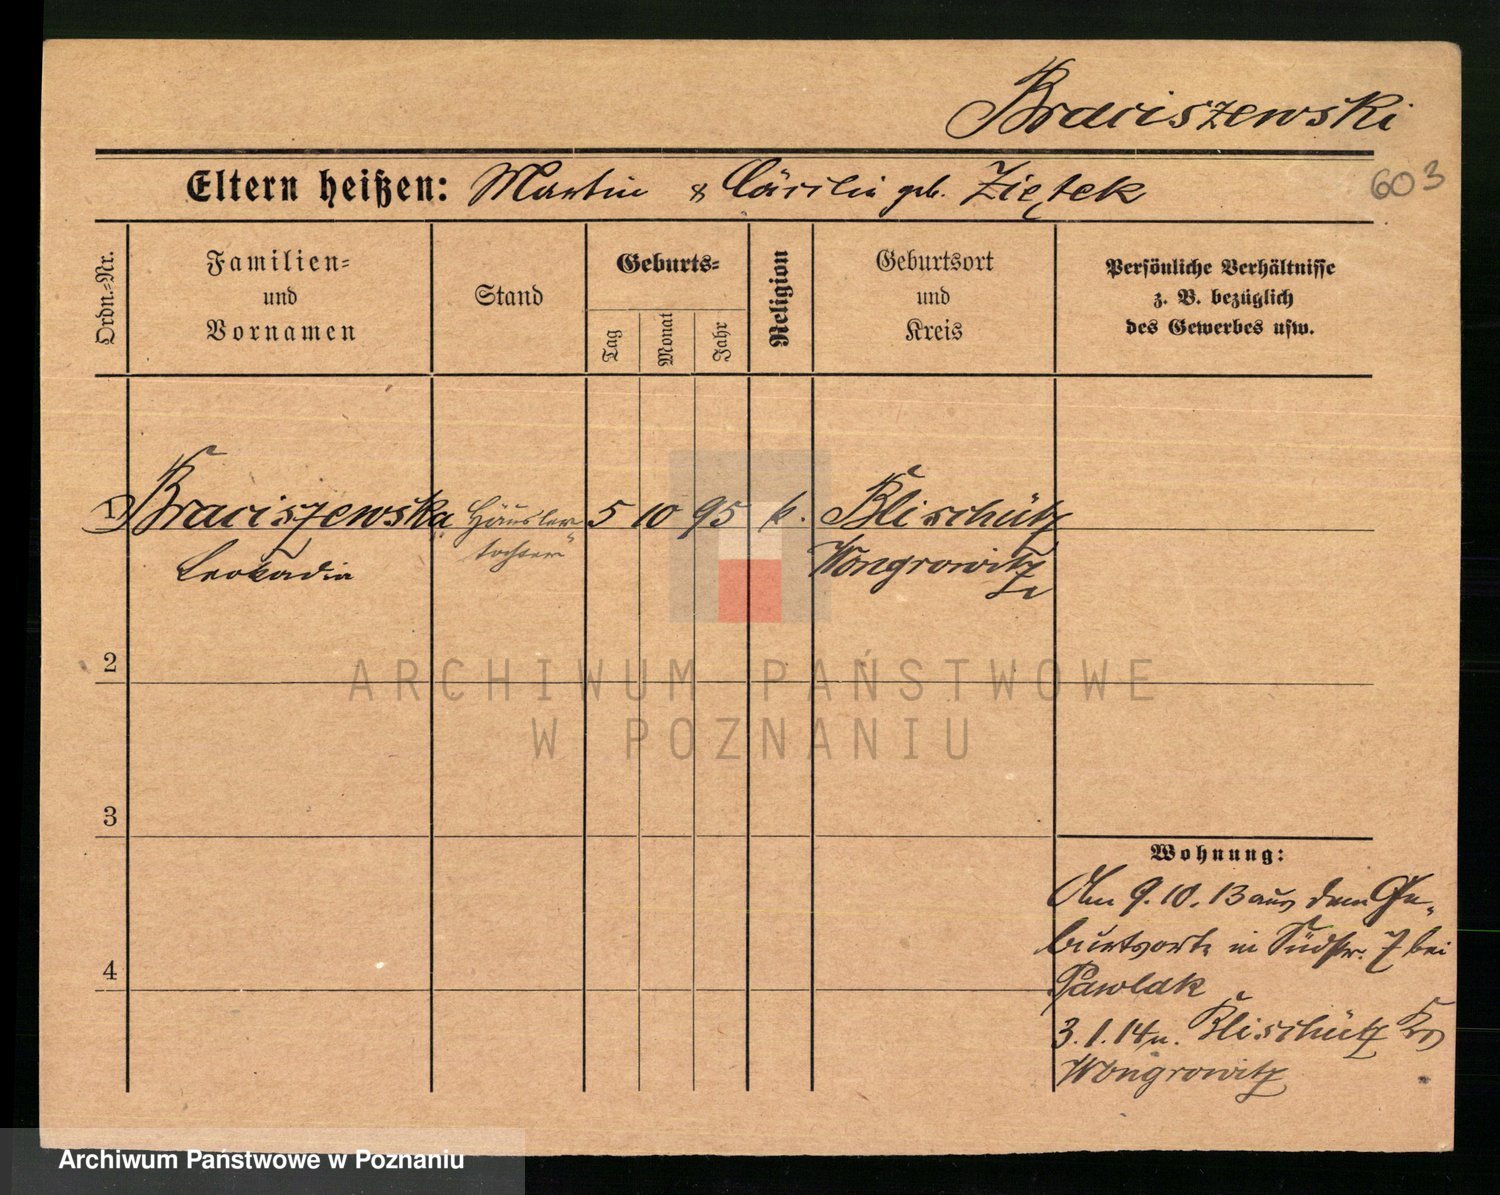 Braciszewski
Eltern heißen: Martin & Cäcilie geb. Ziętek
603
Ordn.-Nr.
Familien-
und
Vornamen
Stand
Geburts-
Tag
Monat
Jahr
Religion
Geburtsort
und
Kreis
Persönliche Verhältnisse
z. B. bezüglich
des Gewerbes usw.
1 Braciszewska Häusler 5 10 95 k. Klischütz
Leokadia tochter Wongrowitz
2
3
4
Wohnung:
Am 9.10.13 aus dem Ge-
burtsorte in Südstr. 7 bei
Pawlak
3.1.14 n. Klischütz Krs
Wongrowitz
ARCHIWUM PAŃSTWOWE
W POZNANIU
Archiwum Państwowe w Poznaniu